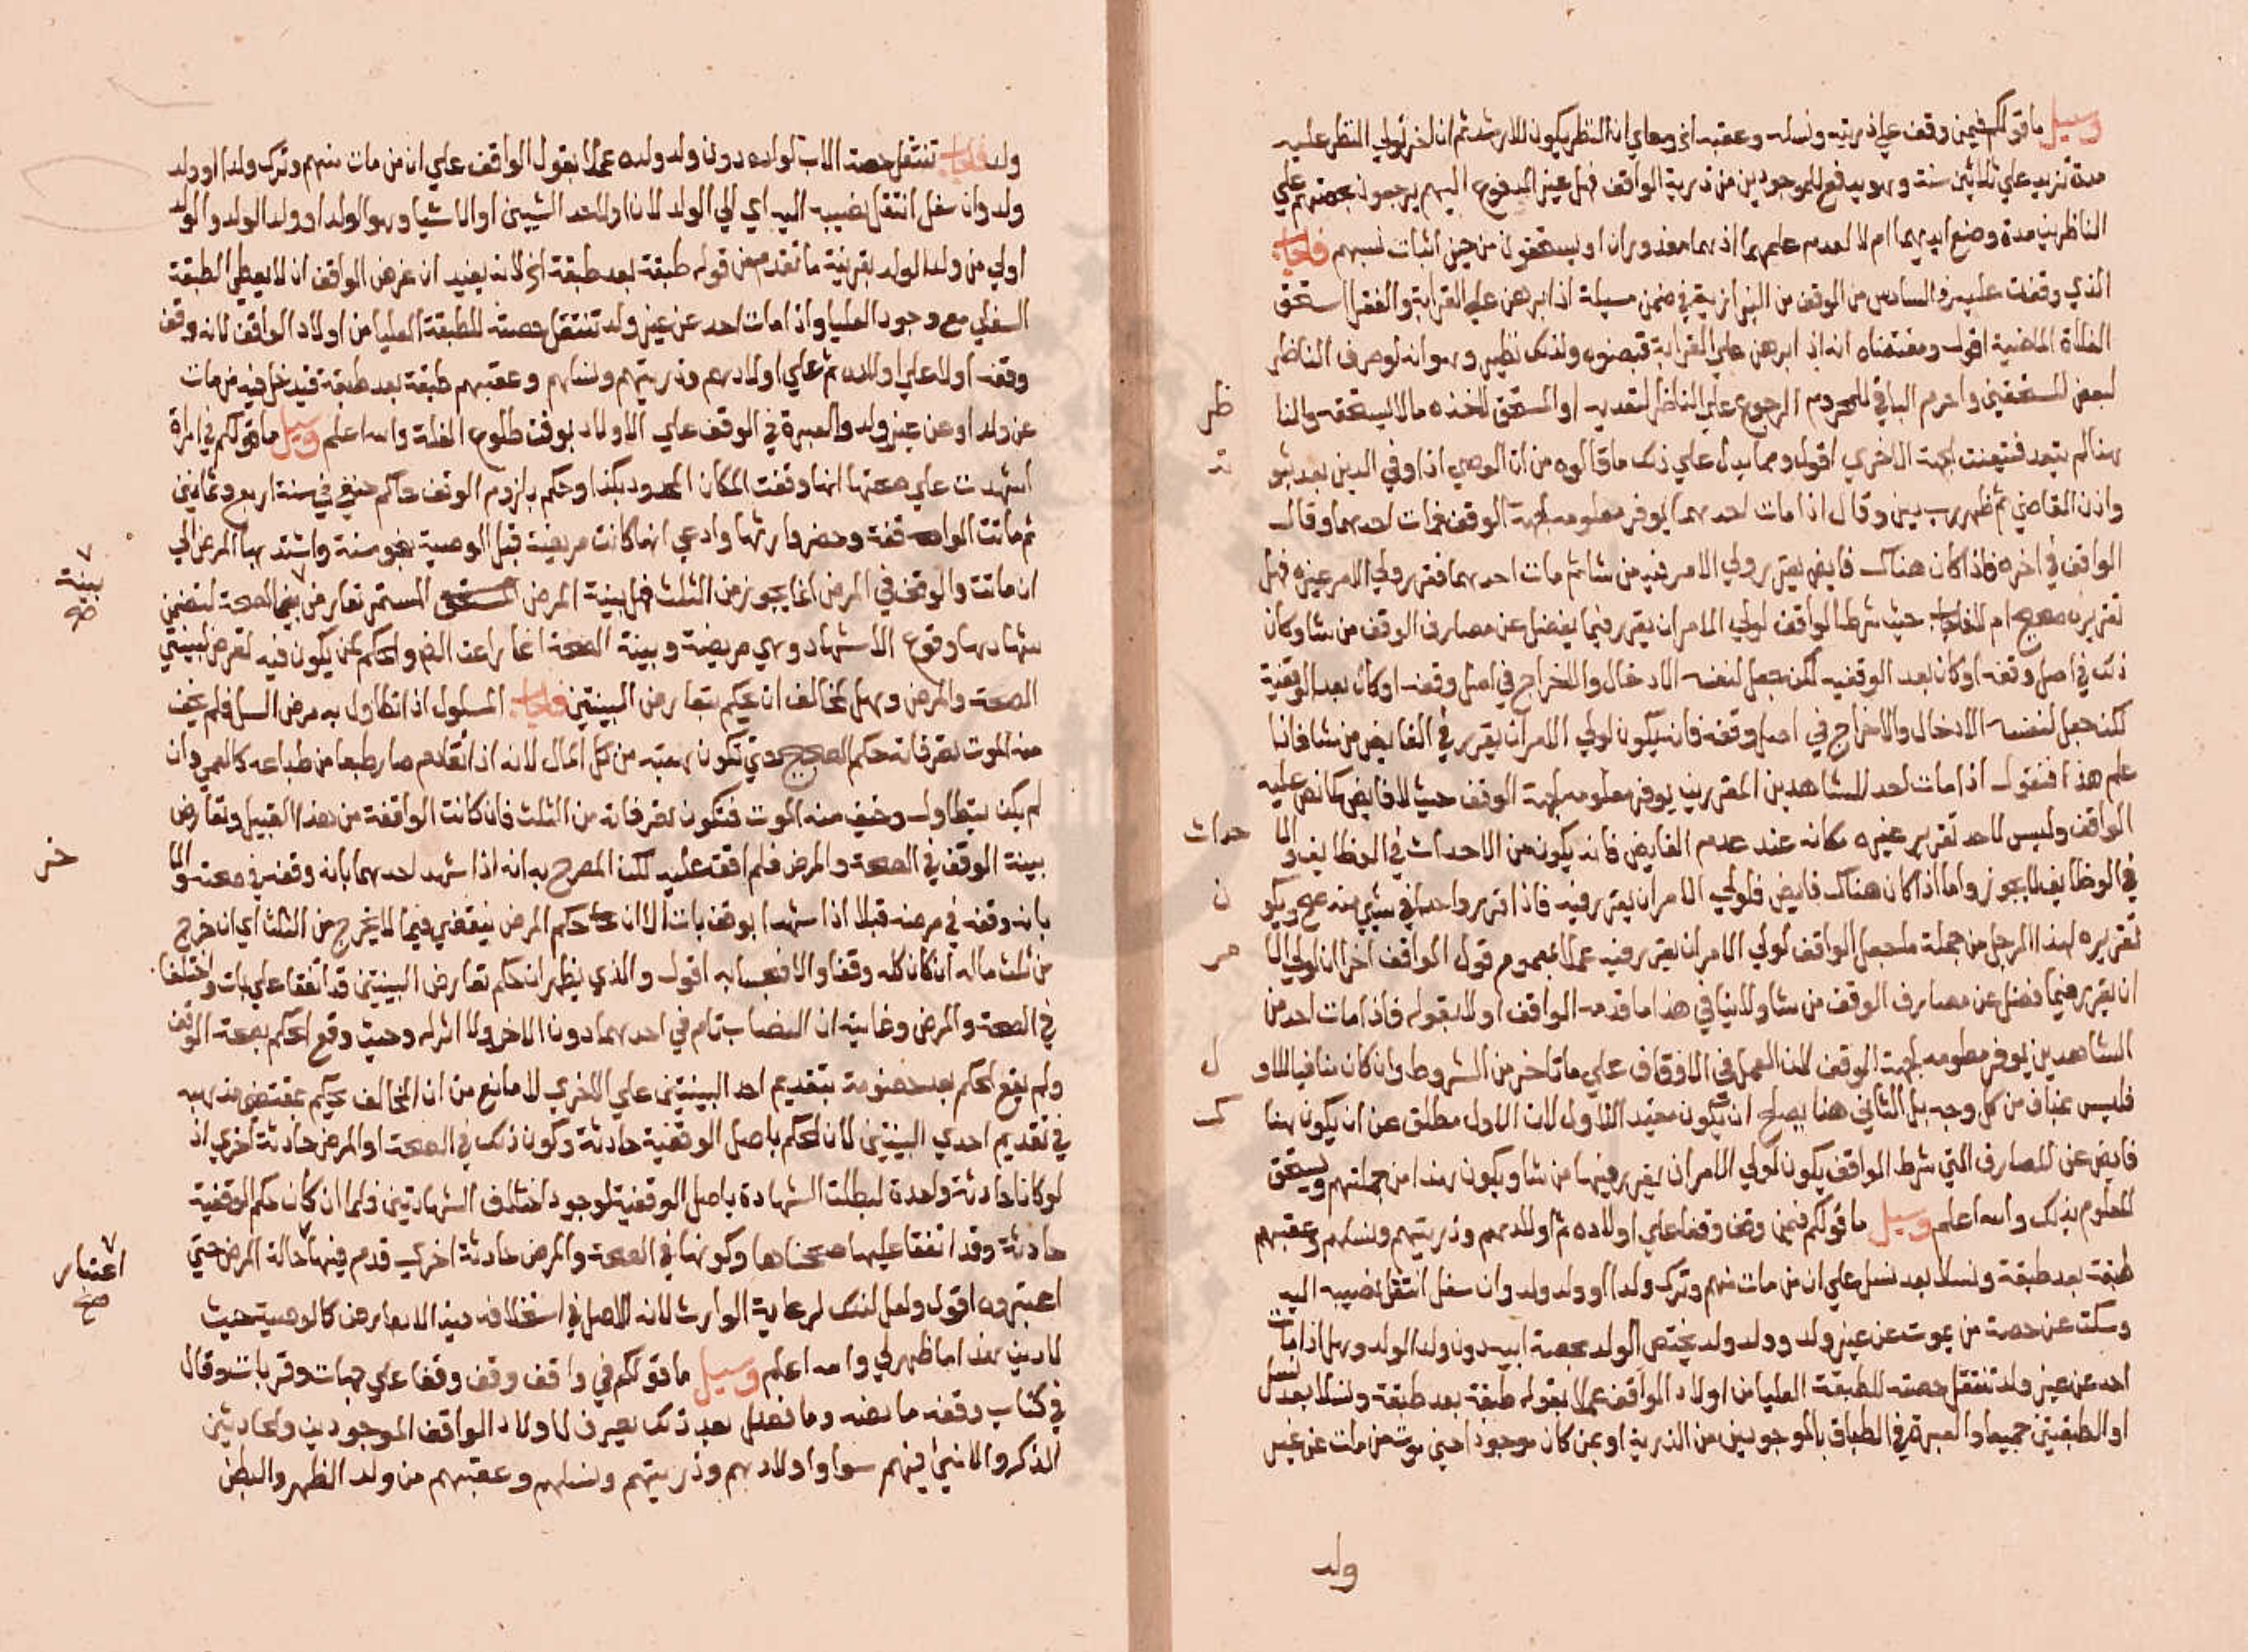 وسيل ما قولكم فيمن وقف علي ذريته ونسله وعقبه الخ وعلي ان النظر يكون للارشد ثم ان اخر تولي النظر عليه
مدة تزيد علي ثلاثين سنة وهو يدفع للموجودين من ذرية الواقف فهل عين المدفوع اليهم يرجعون بحصتهم علي
الناظرين مدة وضع ايديهما ام لا لعدم علمهما اذ هما معذوران او يستحقون من حين اثبات نسبهم فاجاب
الذي وقفت عليه في السادس من الوقف من البزازية في ضمن مسيلة اذا برهن علي القرابة والفقر استحق
الغلة الماضية اقول ومقتضاه انه اذا برهن علي القرابة ولذلك نظير وهو انه لو صرف الناظر
لبعض المستحقين واحرم الباقي للمحروم الرجوع علي الناظر لتعديه او المستحق لاخذه ما لا يستحقه والنا
ظر
هنا لم يتعد فتعينت الجهة الاخري اقول ومما يدل علي ذلك ما قالوه من ان الوصي اذا وفي الدين بعد ثبو
ته
واذن القاضي ثم ظهر رب دين وقال اذا مات احدهما يوفر معلومه لجهة الوقف فمات احدهما وقال
الواقف في اخره فاذا كان هناك فايض يقرر ولي الامر فيه من شا ثم مات احدهما فقرر ولي الامر غيره فهل
تقريره صحيح ام لا فاجاب حيث شرط الواقف لولي الامر ان يقرر فيما يفضل عن مصارف الوقف من شا وكان
ذلك في اصل وقفه او كان بعد الوقفية لكن جعل لنفسه الادخال والاخراج في اصل وقفه او كان بعد الوقفية
لكنه جعل لنفسه الادخال والاخراج في اصل وقفه فانه يكون لولي الامر ان يقرر في الفايض من شا فاذا
علم هذا فنقول اذا مات احد الشاهدين المقررين يوفر معلومه لجهة الوقف حيث لا فايض كما نص عليه
الواقف وليس لاحد تقرير غيره مكانه عند عدم الفايض فانه يكون من الاحداث في الوظايف والا
حداث
في الوظايف لا يجوز واما اذا كان هناك فايض فلولي الامر ان يقرر فيه فاذا قرر واحدا في شي منه صح ويكو
ن
تقريره لهذا الرجل من جملة ما جعل الواقف لولي الامر ان يقرر فيه عملا بعموم قول الواقف اخرا ان لولي الا
مر
ان يقرر فيما فضل عن مصارف الوقف من شا ولا ينافي هذا ما قدمه الواقف اولا بقوله فاذا مات احد من
الشاهدين يوفر معلومه لجهة الوقف لان العمل في الاوقاف علي ما تاخر من الشروط وان كان منافيا للاو
ل
فليس بمناف من كل وجه بل الثاني هنا يصلح ان يكون مقيد اللاول لان الاول مطلق عن ان يكون هنا
ك
فايض عن المصارف التي شرط الواقف يكون لولي الامر ان يقرر فيها من شا ويكون هذا من جملتهم ويستحق
المعلوم بذلك والله اعلم وسيل ما قولكم فيمن وقف وقفا علي اولاده ثم اولادهم وذريتهم ونسلهم وعقبهم
طبقة بعد طبقة ونسلا بعد نسل علي ان من مات منهم وترك ولدا او ولد ولد وان سفل انتقل نصيبه اليه
وسكت عن حصة من يموت عن غير ولد وولد ولد يختص الولد بحصة ابيه دون ولد الولد وهل اذا مات
احد عن غير ولد تنتقل حصته للطبقة العليا من اولاد الواقف عملا بقوله طبقة بعد طبقة ونسلا بعد نسل
او الطبقتين جميعا والعبرة في الطباق بالموجودين من الذرية او بمن كان موجودا حين موت من مات عن غير
ولد
ولد فاجاب تنتقل حصة الاب لولاده دون ولد ولده عملا بقول الواقف علي ان من مات منهم وترك ولدا او ولد
ولد وان سفل انتقل نصيبه اليه اي الي الولد لان او لاحد الشيين او الاشيا وهو الولد او ولد الولد والولد
اولي من ولد الولد بقرينة ما تقدم من قوله طبقة بعد طبقة الخ لانه يفيد ان غرض الواقف ان لا يعطي الطبقة
السفلي مع وجود العليا واذا مات احد عن غير ولد تنتقل حصته للطبقة العليا من اولاد الواقف لانه وقف
وقفه اولا علي اولاده ثم علي اولادهم وذريتهم ونسلهم وعقبهم طبقة بعد طبقة فيدخل فيه من مات
عن ولد او عن غير ولد والعبرة في الوقف علي الاولاد بوقت طلوع الغلة والله اعلم وسيل ما قولكم في امراة
اشهدت علي صحتها انها وقفت المكان المحدود بكذا وحكم بلزوم الوقف حاكم حنفي في سنة اربع وثمانين
ثم ماتت الواقفة وحضر وارثها وادعي انها كانت مريضة قبل الوصية بنحو سنة واشتد بها المرض الي
ان ماتت والوقف في المرض انما يجوز من الثلث فهل بينة المرض المستمر تعارض الصحة لتضمن
بينة صح
شهادتها وقوع الاشهاد وهي مريضة وبينة الصحة والحكم لمن يكون فيه تعرض لبينتي
الصحة والمرض وهل لمخالف ان يحكم بتعارض البينتين فاجاب المسلول اذا تطاول به مرض السل فلم يخف
منه الموت تصرفاته حكم الصحيح حتي تكون هبته من كل المال لانه اذا تقادم صار طبعا من طباعه كالعمي وان
لم يكن يتطاول وخيف منه الموت فتكون تصرفاته من الثلث فان كانت الواقفة من هذا القبيل وتعارض
بينة الوقف في الصحة والمرض فلم اقف عليه لكن المصرح به انه اذا شهد احدهما بانه وقفه في صحته والا
خر
بانه وقفه في مرضه قبلا اذا شهدا بوقف بات الا ان حكم المرض ينقض فيما لا يخرج من الثلث اي ان خرج
من ثلث ماله ان كان كله وقفا والا فبحسابه اقول والذي يظهر ان حكم تعارض البينتين قد اتفقا علي بات واختلفا
في الصحة والمرض وغايته ان النصاب تام في احدهما دون الاخر ولا اثر له وحيث وقع الحكم بصحة الوقف
ولم يقع الحكم بعد خصومة بتقديم احد البينتين علي الاخري لا مانع من ان المخالف يحكم بمقتضي مذهبه
في تقديم احدي البينتين لان الحكم باصل الوقفية حادثة وكون ذلك في الصحة او المرض حادثة اخري اذ
لو كانا حادثة واحدة لبطلت الشهادة باصل الوقفية لوجود اختلاف الشهادتين فلما ان كان حكم الوقفية
حادثة وقد اتفقا عليها صححناها وكونها في الصحة والمرض حادثة اخري قدم فيها حالة المرض حتي
اعتبار صح
اعتبروه اقول ولعل لذلك لرعاية الوارث لانه الاصل في استخلافه كالوصية حيث
لا دين هذا ما ظهر لي والله اعلم وسيل ما قولكم في واقف وقف وقفا علي جهات وقربات وقال
في كتاب وقفه ما نصه وما فضل بعد ذلك يصرف لاولاد الواقف الموجودين والحادثين
الذكر والانثي فيهم سوا واولادهم وذريتهم ونسلهم وعقبهم من ولد الظهر والبطن